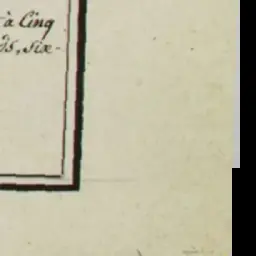 à Cinq
ds, six-